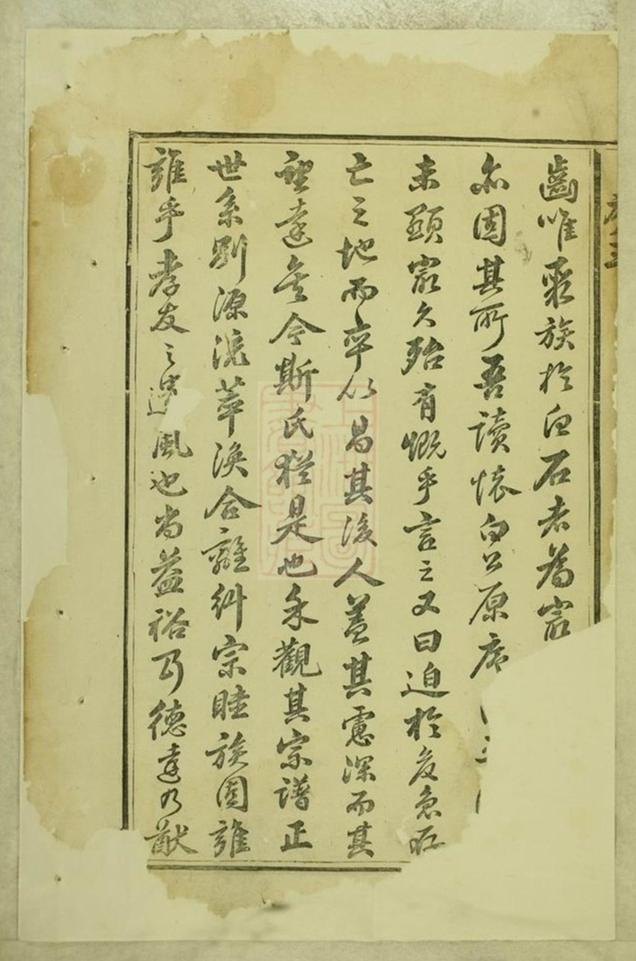 齒唯聚族於白石者為最
亦固其所吾讀懷白公原序
未顯最久殆有慨乎言之又曰迫於危急存
亡之地而卒以昌其後人蓋其慮深而其
望遠矣今斯氏猶是也余觀其宗譜正
世系別源流萃渙合離糾宗睦族固雍
雍乎孝友之遺風也尚益裕乃德遠乃猷